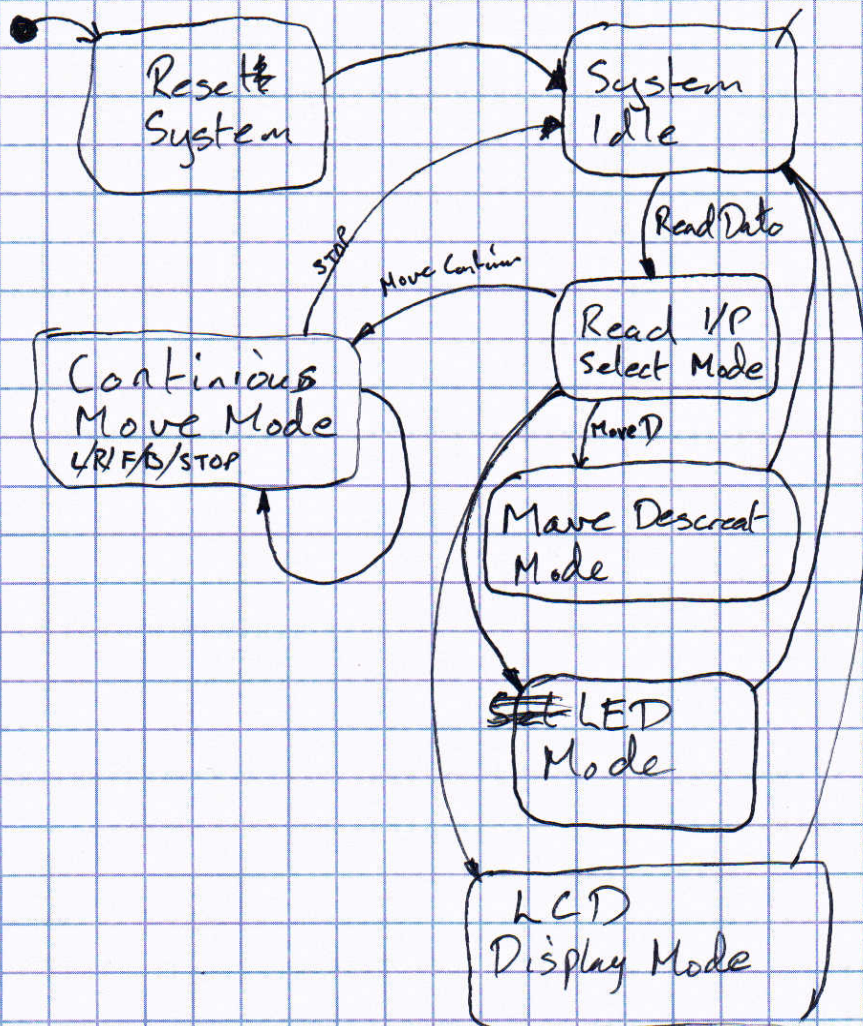 Reset
System
System
Idle
Read Data
STOP
Move Continu
Read I/P
Select Mode
Continious
Move Mode
L/R/F/B/STOP
MoveD
Move Descreat
Mode
LED
Mode
LCD
Display Mode